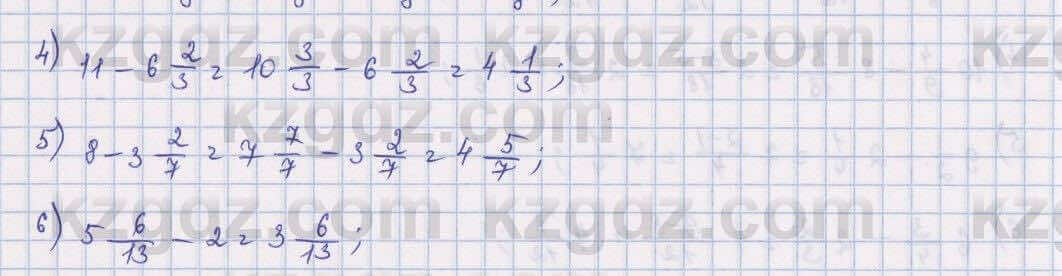 kzgdz.com kzgdz.com kz
4) 11 - 6 2/3 = 10 3/3 - 6 2/3 = 4 1/3;
kzgdz.com
5) 8 - 3 2/7 = 7 7/7 - 3 2/7 = 4 5/7;
kzgdz.com kzgdz.com kz
6) 5 6/13 - 2 = 3 6/13;